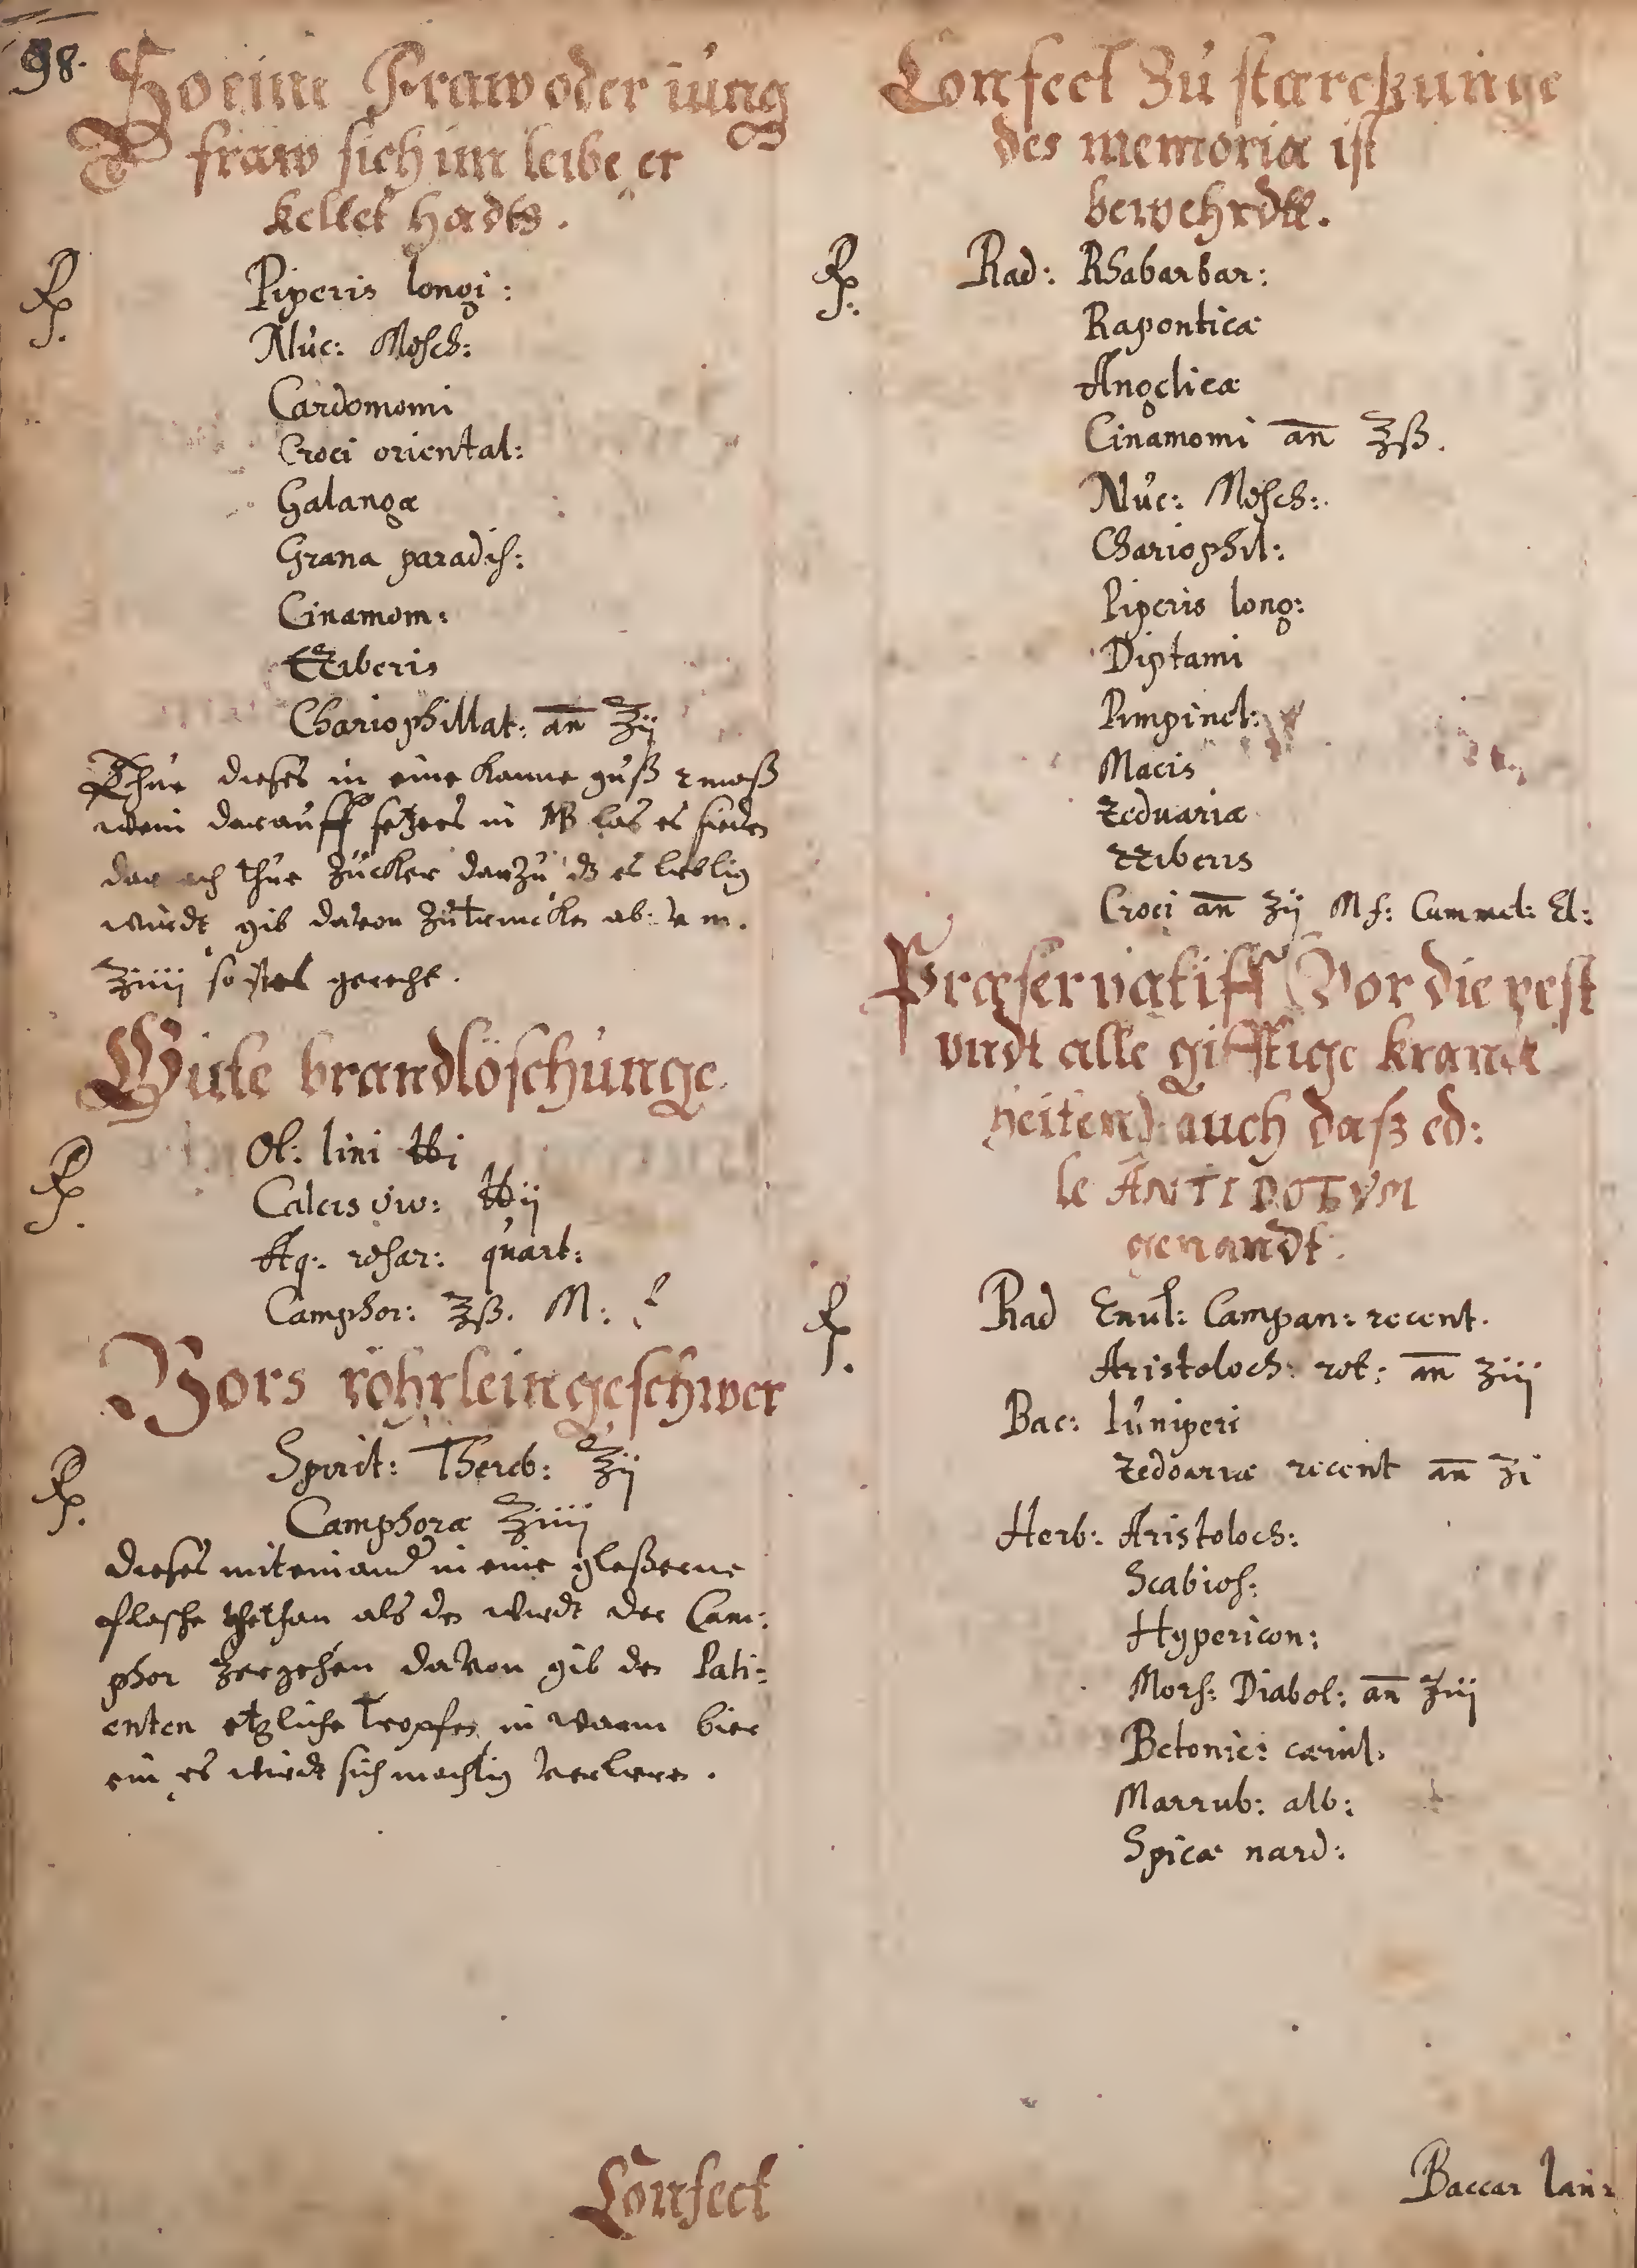 98.
So eine Fraw oder iung
fraw sich im leibe er
keltet hadts.
Rp.
Piperis longi:
Nuc: Mosch:
Cardomomi
Croci oriental:
Galanga
Grana paradis:
Cinamom:
Zziberis
Chariophillat: an ʒij
Thue dieses in eine Kanne guß 2 maß
wein darauff setzees in MB las es sieden
darnach thue Zucker darzu dz es lieblig
wirdt gib davon zutrincken ab: v m.
ʒiiij so ists gerecht.
Gute brandlöschunge
Rp.
Ol: lini ℔i
Calcis viv: ℔ij
Aq: rosar: quart:
Camphor: ʒß. M:
Vors röhrleingeschwer
Rp.
Spirit: Thereb: ʒij
Camphora ʒiiij
dieses miteinand in eine gleßerne
flasche gethan als den wirdt der Cam:
phor zergehen davon gib den Pati:
enten etzliche tropfen in warm bier
ein es wirdt sich machtig verlieren.
Confect
Confect Zu starckunge
des memoria ist
bewehrdtt.
Rp.
Rad: Rhabarbar:
Rapontica
Angelica
Cinamomi an ʒß.
Nuc: Mosch:
Chariophil:
Piperis long:
Diptami
Pimpinel:
Macis
Zeduaria
Zziberis
Croci an ʒij M f: Cummel: El:
Præservatiff Vor die pest
undt alle gifftige kranck
heitend auch daß ed:
le ANTIDOTVM
genandt.
Rp.
Rad Enul: Campan: recent.
Aristoloch: rot: an ʒiij
Bac: Iuniperi
Zedoariæ recent an ʒi
Herb: Aristoloch:
Scabios:
Hypericon:
Mors: Diabol: an ʒiij
Betonic: cærul.
Marrub: alb:
Spicæ nard:
Baccar lau: